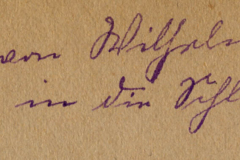 von Wilhelm
in die Schl